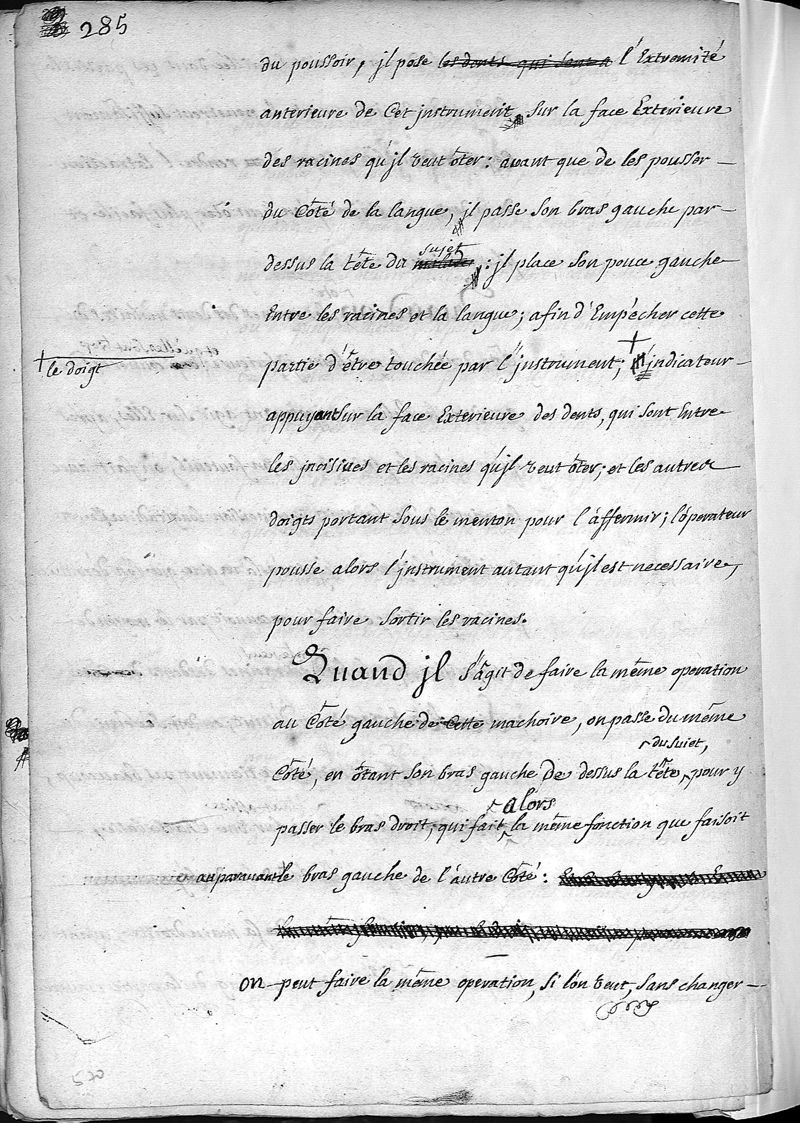 285
du poussoir, il pose les dents qui sont a l'Extremité
anterieure de Cet jnstrument, sur la face Exterieure
des racines qu'jl veut ôter: avant que de les pousser
du Côté de la langue, jl passe son bras gauche par-
sujet
dessus la tête du malade: jl place son pouce gauche
Entre les racines et la langue; afin d'Empécher cette
le doigt
partie d'être touchée par l'jnstrument; jndicateur
appuyant sur la face Exterieure des dents, qui sont Entre
les jncisives et les racines qu'jl veut ôter; et les autres
doigts portant sous le menton pour l'affermir; l'operateur
pousse alors l'jnstrument autant qu'jl est necessaire,
pour faire sortir les racines.
Quand jl s'agit de faire la même operation
au Côté gauche de Cette machoire, on passe du même
du sujet,
Côté, en ôtant son bras gauche de dessus la tête, pour y
alors
passer le bras droit, qui fait la même fonction que faisoit
auparavant le bras gauche de l'autre Côté:
on peut faire la même operation, si l'on veut, sans changer
520